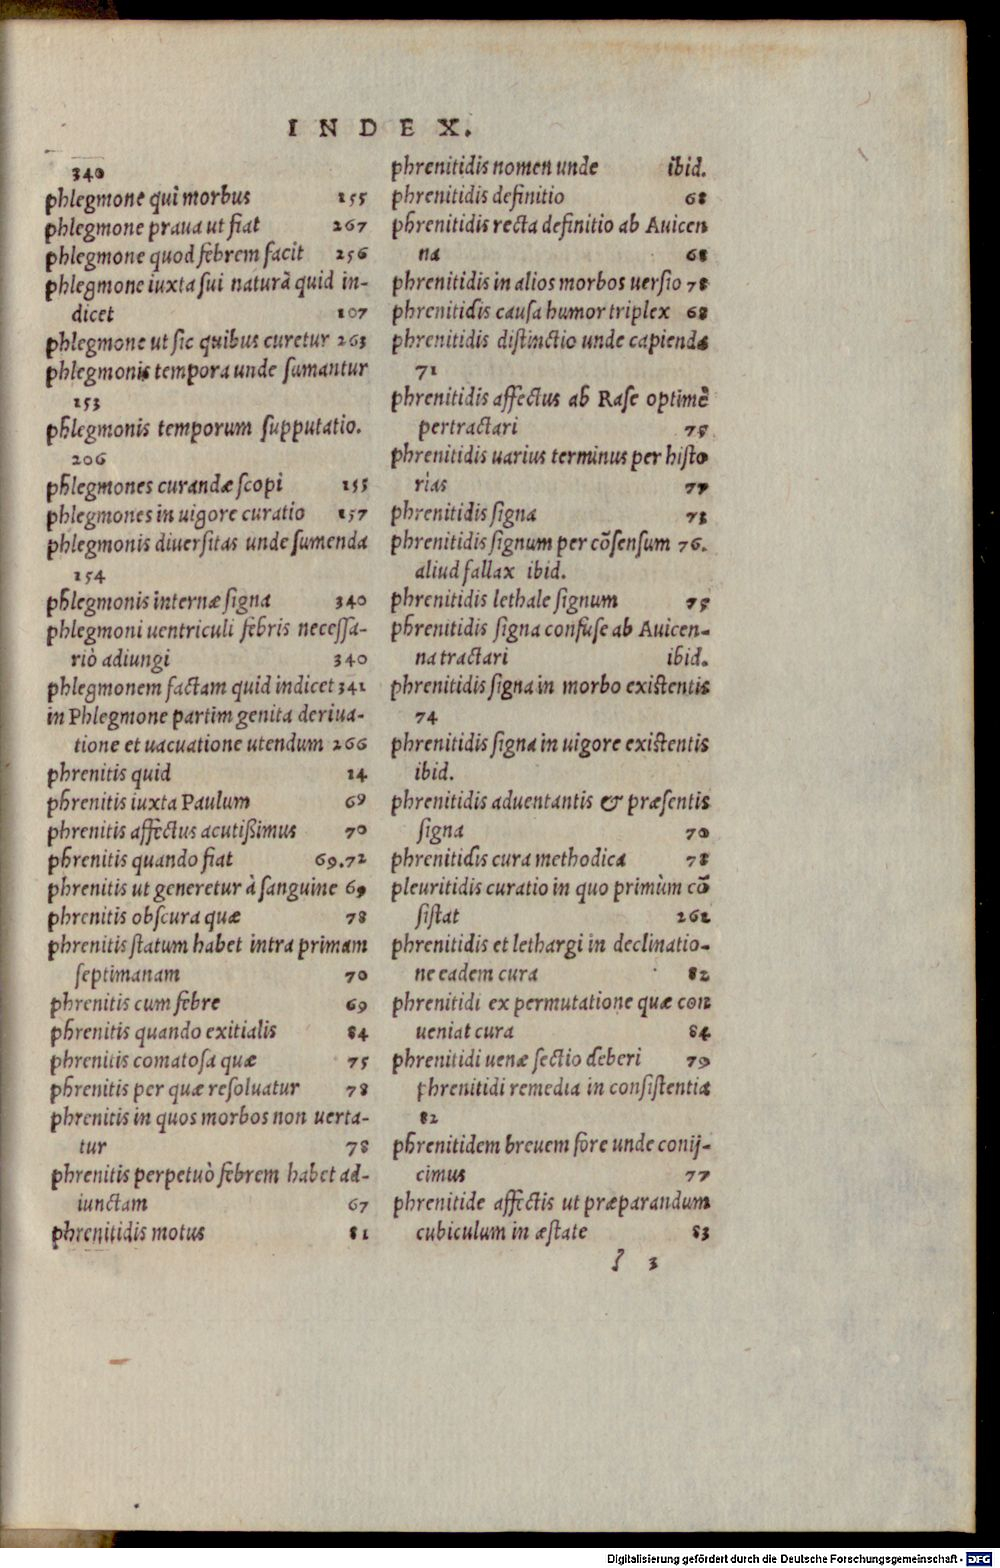 INDEX.
340
phlegmone qui morbus 155
phlegmone praua ut fiat 267
phlegmone quod febrem facit 256
phlegmone iuxta sui naturã quid in-
dicet 107
phlegmone ut sic quibus curetur 263
phlegmonis tempora unde sumantur
153
phlegmonis temporum supputatio.
206
phlegmones curandæ scopi 155
phlegmones in uigore curatio 157
phlegmonis diuersitas unde sumenda
154
phlegmonis internæ signa 340
phlegmoni uentriculi febris necessa-
riò adiungi 340
phlegmonem factam quid indicet 341
in Phlegmone partim genita deriua-
tione et uacuatione utendum 266
phrenitis quid 14
phrenitis iuxta Paulum 69
phrenitis affectus acutißimus 70
phrenitis quando fiat 69.72
phrenitis ut generetur à sanguine 69
phrenitis obscura quæ 78
phrenitis statum habet intra primam
septimanam 70
phrenitis cum febre 69
phrenitis quando exitialis 84
phrenitis comatosa quæ 75
phrenitis per quæ resoluatur 78
phrenitis in quos morbos non uerta-
tur 78
phrenitis perpetuò febrem habet ad-
iunctam 67
phrenitidis motus 81
phrenitidis nomen unde ibid.
phrenitidis definitio 68
phrenitidis recta definitio ab Auicen
na 68
phrenitidis in alios morbos uersio 78
phrenitidis causa humor triplex 68
phrenitidis distinctio unde capienda
71
phrenitidis affectus ab Rase optimè
pertractari 75
phrenitidis uarius terminus per histo
rias 77
phrenitidis signa 73
phrenitidis signum per cõsensum 76.
aliud fallax ibid.
phrenitidis lethale signum 75
phrenitidis signa confuse ab Auicen-
na tractari ibid.
phrenitidis signa in morbo existentis
74
phrenitidis signa in uigore existentis
ibid.
phrenitidis aduentantis & præsentis
signa 70
phrenitidis cura methodica 78
pleuritidis curatio in quo primùm cõ
sistat 261
phrenitidis et lethargi in declinatio-
ne eadem cura 82
phrenitidi ex permutatione quæ con
ueniat cura 84
phrenitidi uenæ sectio deberi 79
phrenitidi remedia in consistentia
82
phrenitidem breuem fore unde conij-
cimus 77
phrenitide affectis ut præparandum
cubiculum in æstate 83
3
Digitalisierung gefördert durch die Deutsche Forschungsgemeinschaft - DFG